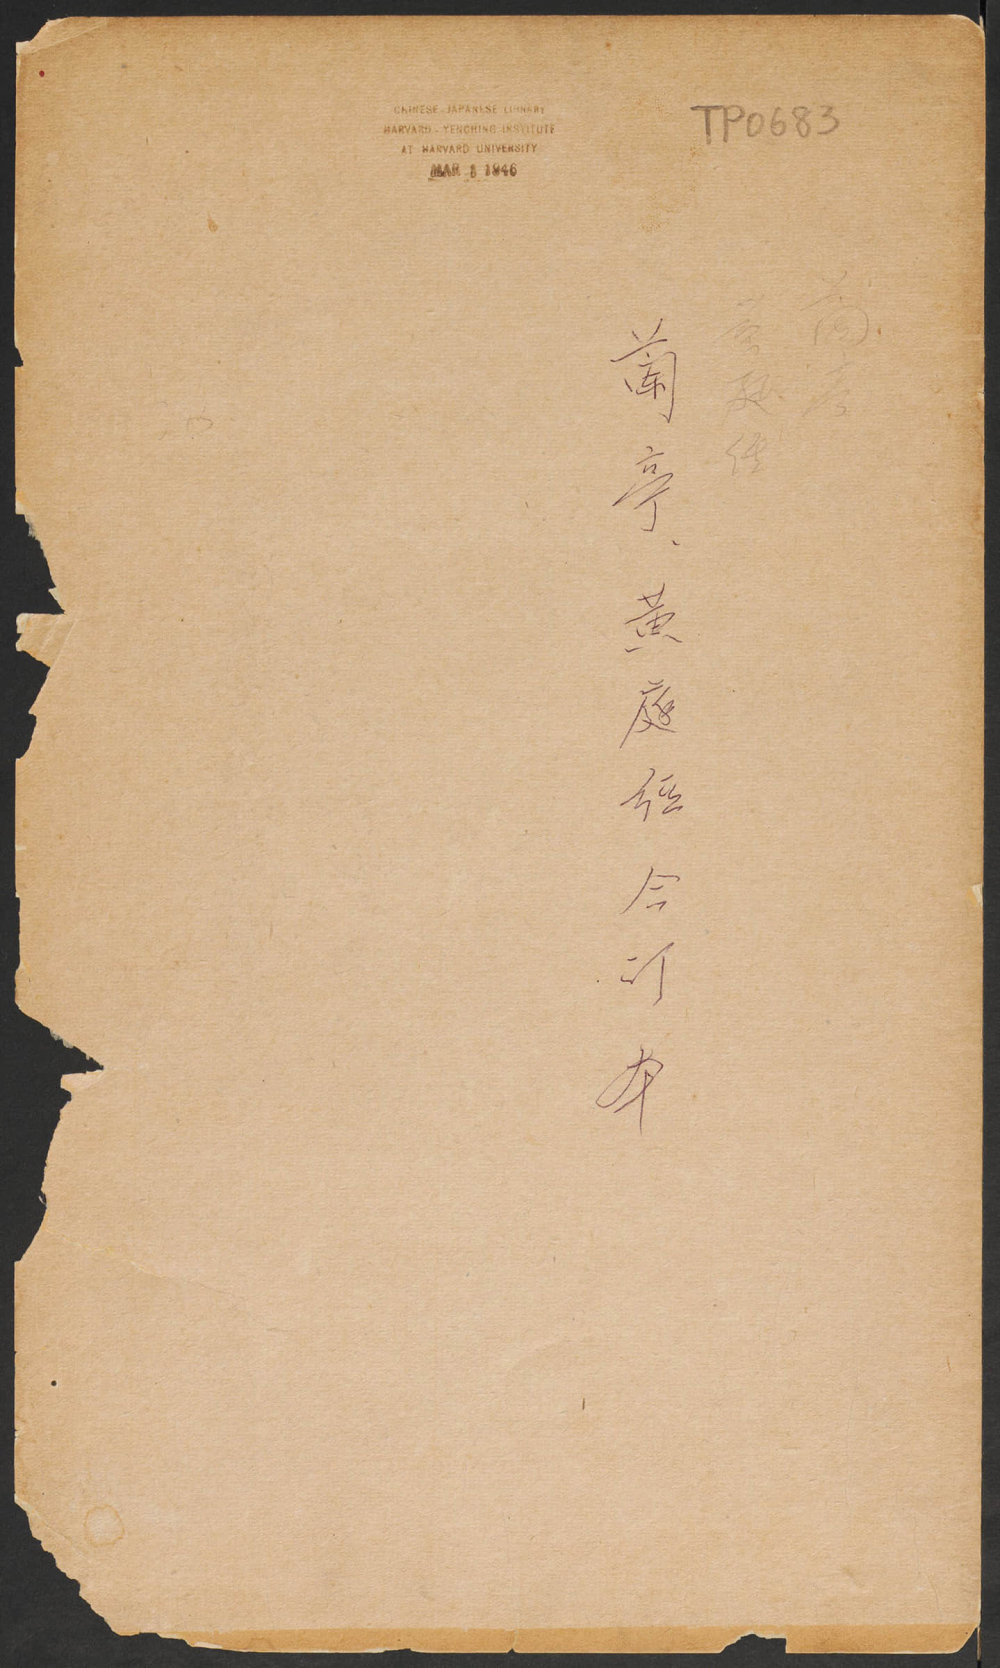 CHINESE-JAPANESE LIBRARY
HARVARD-YENCHING INSTITUTE
AT HARVARD UNIVERSITY
MAR 1 1946
TP0683
蘭亭
黃庭經
蘭亭、黃庭經合订本